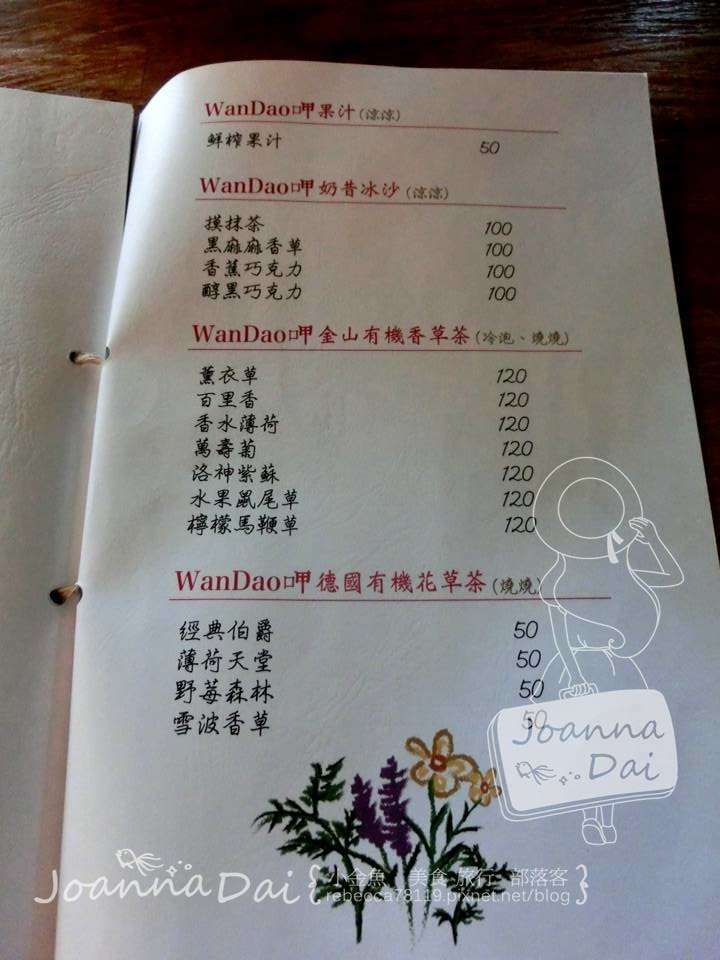 WanDao呷果汁(涼涼)
鮮榨果汁 50
WanDao呷奶昔冰沙(涼涼)
摸抹茶 100
黑麻麻香草 100
香蕉巧克力 100
醇黑巧克力 100
WanDao呷金山有機香草茶(冷泡、燒燒)
薰衣草 120
百里香 120
香水薄荷 120
萬壽菊 120
洛神紫蘇 120
水果鼠尾草 120
檸檬馬鞭草 120
WanDao呷德國有機花草茶(燒燒)
經典伯爵 50
薄荷天堂 50
野莓森林 50
雪波香草 50
Joanna
Dai
JoannaDai
小金魚 美食 旅行 部落客
rebecca78119.pixnet.net/blog